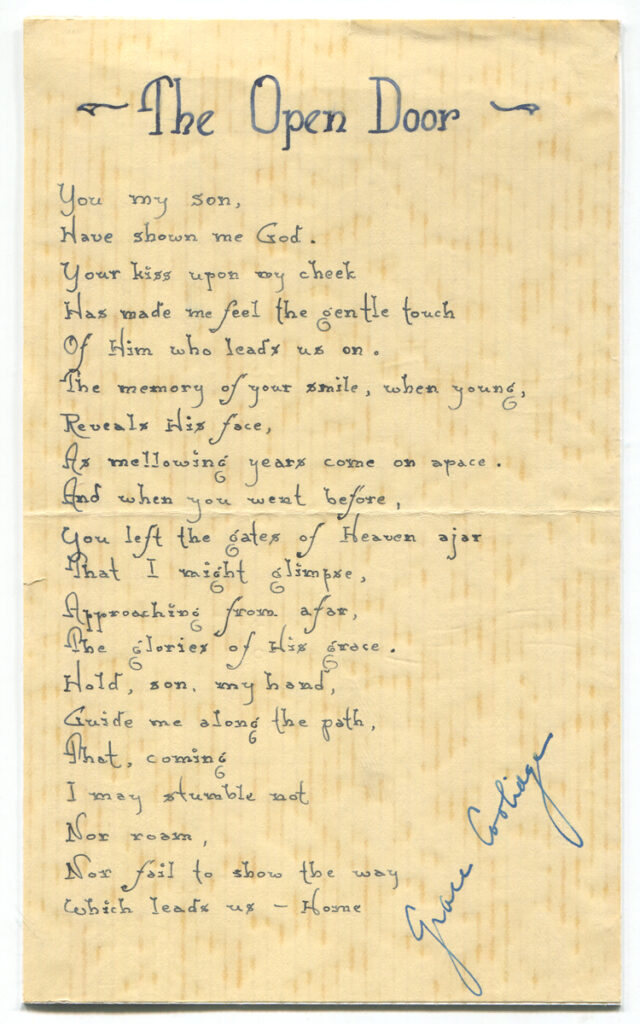 ~ The Open Door ~
You my son,
Have shown me God.
Your kiss upon my cheek
Has made me feel the gentle touch
Of Him who leads us on.
The memory of your smile, when young,
Reveals His face,
As mellowing years come on apace.
And when you went before,
You left the gates of Heaven ajar
That I might glimpse,
Approaching from afar,
The glories of His grace.
Hold, son, my hand,
Guide me along the path,
That, coming
I may stumble not
Nor roam,
Nor fail to show the way
Which leads us - Home
Grace Coolidge